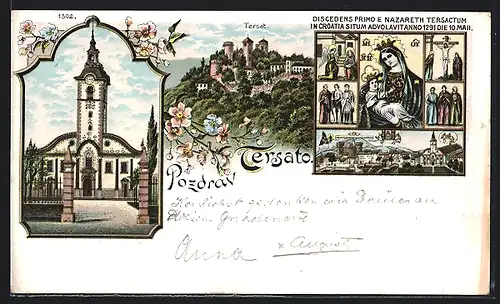 1502.
Tersat.
DISCEDENS PRIMO E NAZARETH TERSACTUM
IN CROATIA SITUM ADVOLAVIT ANNO 1291 DIE 10. MAII.
Pozdrav
Tersato.
Herzlichst gedenken wir
Anna
August